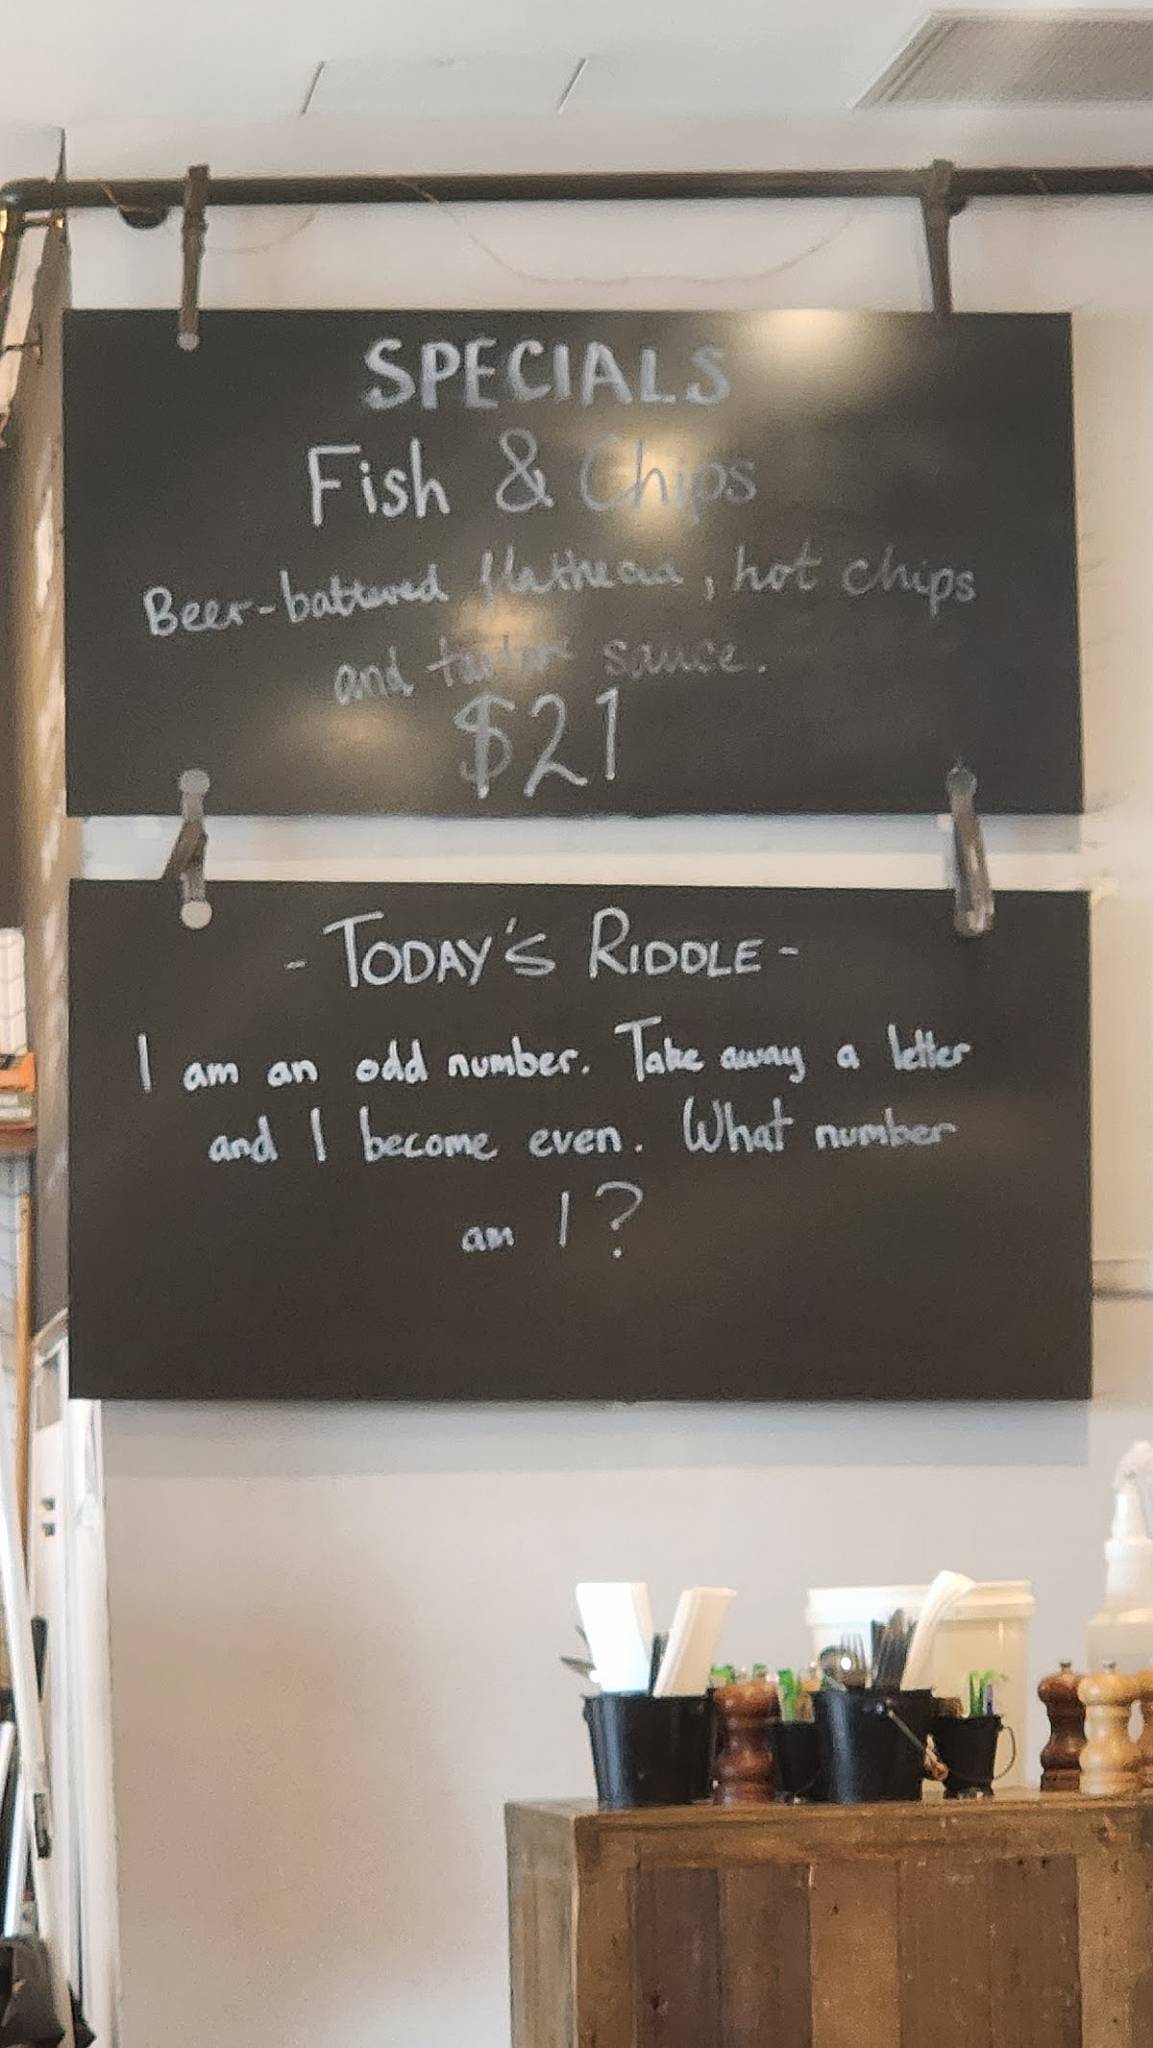 SPECIALS
Fish & Chips
Beer-battered flathead, hot chips
and tartare sauce.
$21
- TODAY'S RIDDLE -
I am an odd number. Take away a letter
and I become even. What number
am I?